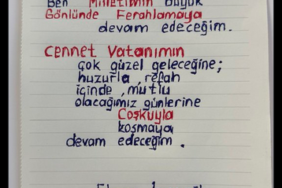 Ben Milletimin büyük
Gönlünde Ferahlamaya
devam edeceğim.
Cennet Vatanımın
çok güzel geleceğine;
huzurla, refah
içinde, mutlu
olacağımız günlerine
Coşkuyla
koşmaya
devam edeceğim.